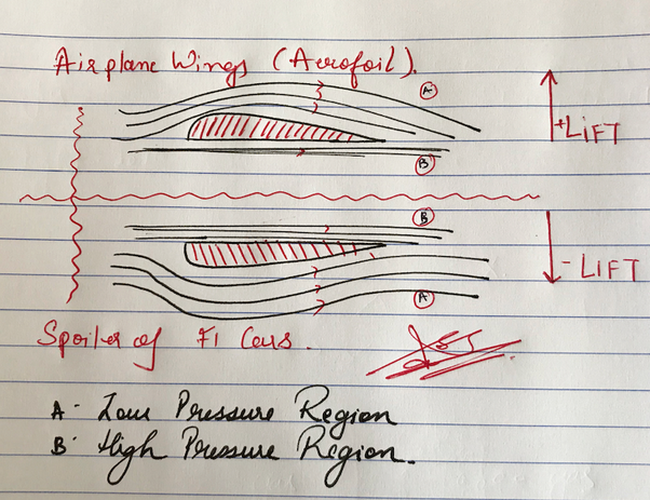 Airplane Wings (Aerofoil).
A
+LIFT
B
B
- LIFT
A
Spoiler of F1 Cars.
A - Low Pressure Region
B - High Pressure Region.